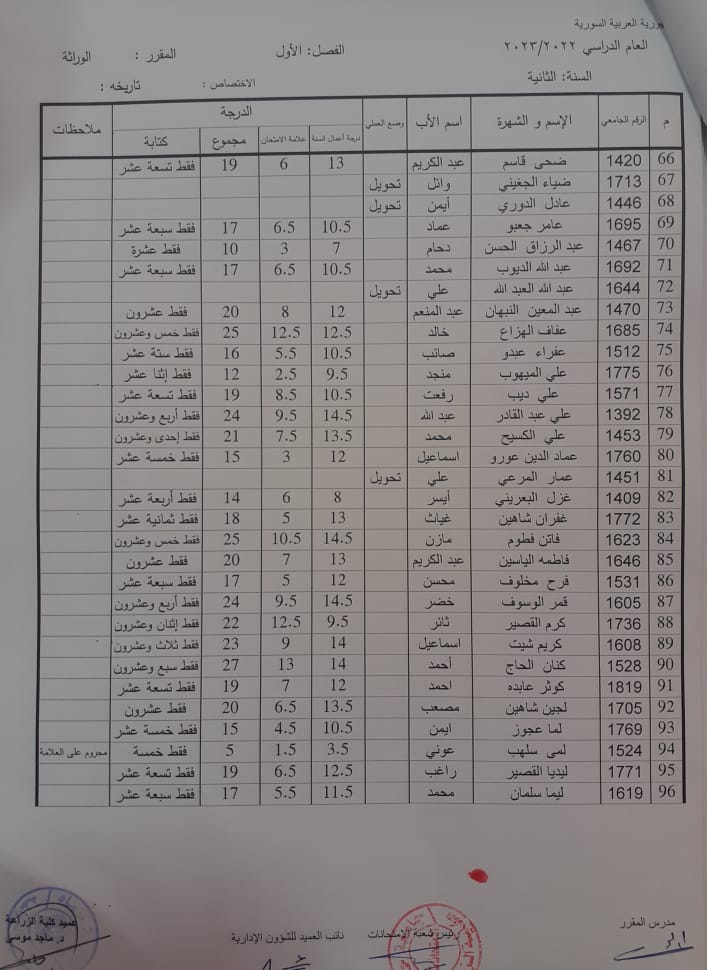 ورية العربية السورية
العام الدراسي ٢٠٢٣/٢٠٢٢ الفصل: الأول المقرر : الوراثة
السنة: الثانية الاختصاص : تاريخه :
م الرقم الجامعي الإسم و الشهرة اسم الأب وضع العملي الدرجة ملاحظات
درجة أعمال السنة علامة الامتحان مجموع كتابة
66 1420 ضحى قاسم عبد الكريم 13 6 19 فقط تسعة عشر
67 1713 ضياء الجغيني وائل تحويل
68 1446 عادل الدوري أيمن تحويل
69 1695 عامر جعبو عماد 10.5 6.5 17 فقط سبعة عشر
70 1467 عبد الرزاق الحسن دحام 7 3 10 فقط عشرة
71 1692 عبد الله الديوب محمد 10.5 6.5 17 فقط سبعة عشر
72 1644 عبد الله العبد الله علي تحويل
73 1470 عبد المعين النبهان عبد المنعم 12 8 20 فقط عشرون
74 1685 عفاف الهزاع خالد 12.5 12.5 25 فقط خمس وعشرون
75 1512 عفراء عبدو صائب 10.5 5.5 16 فقط ستة عشر
76 1775 علي الميهوب منجد 9.5 2.5 12 فقط إثنا عشر
77 1571 علي ديب رفعت 10.5 8.5 19 فقط تسعة عشر
78 1392 علي عبد القادر عبد الله 14.5 9.5 24 فقط أربع وعشرون
79 1453 علي الكسيح محمد 13.5 7.5 21 فقط إحدى وعشرون
80 1760 عماد الدين عورو اسماعيل 12 3 15 فقط خمسة عشر
81 1451 عمار المرعي علي تحويل
82 1409 غزل البعريني أيسر 8 6 14 فقط أربعة عشر
83 1772 غفران شاهين غياث 13 5 18 فقط ثمانية عشر
84 1623 فاتن فطوم مازن 14.5 10.5 25 فقط خمس وعشرون
85 1646 فاطمه الياسين عبد الكريم 13 7 20 فقط عشرون
86 1531 فرح مخلوف محسن 12 5 17 فقط سبعة عشر
87 1605 قمر الوسوف خضر 14.5 9.5 24 فقط أربع وعشرون
88 1736 كرم القصير ثائر 9.5 12.5 22 فقط إثنان وعشرون
89 1608 كريم شيت اسماعيل 14 9 23 فقط ثلاث وعشرون
90 1528 كنان الحاج أحمد 14 13 27 فقط سبع وعشرون
91 1819 كوثر عابده احمد 12 7 19 فقط تسعة عشر
92 1705 لجين شاهين مصعب 13.5 6.5 20 فقط عشرون
93 1769 لما عجوز ايمن 10.5 4.5 15 فقط خمسة عشر
94 1524 لمى سلهب عوني 3.5 1.5 5 فقط خمسة محروم على العلامة
95 1771 ليديا القصير راغب 12.5 6.5 19 فقط تسعة عشر
96 1619 ليما سلمان محمد 11.5 5.5 17 فقط سبعة عشر
مدرس المقرر رئيس شعبة الإمتحانات نائب العميد للشؤون الإدارية عميد كلية الزراعة
د. ماجد موسى